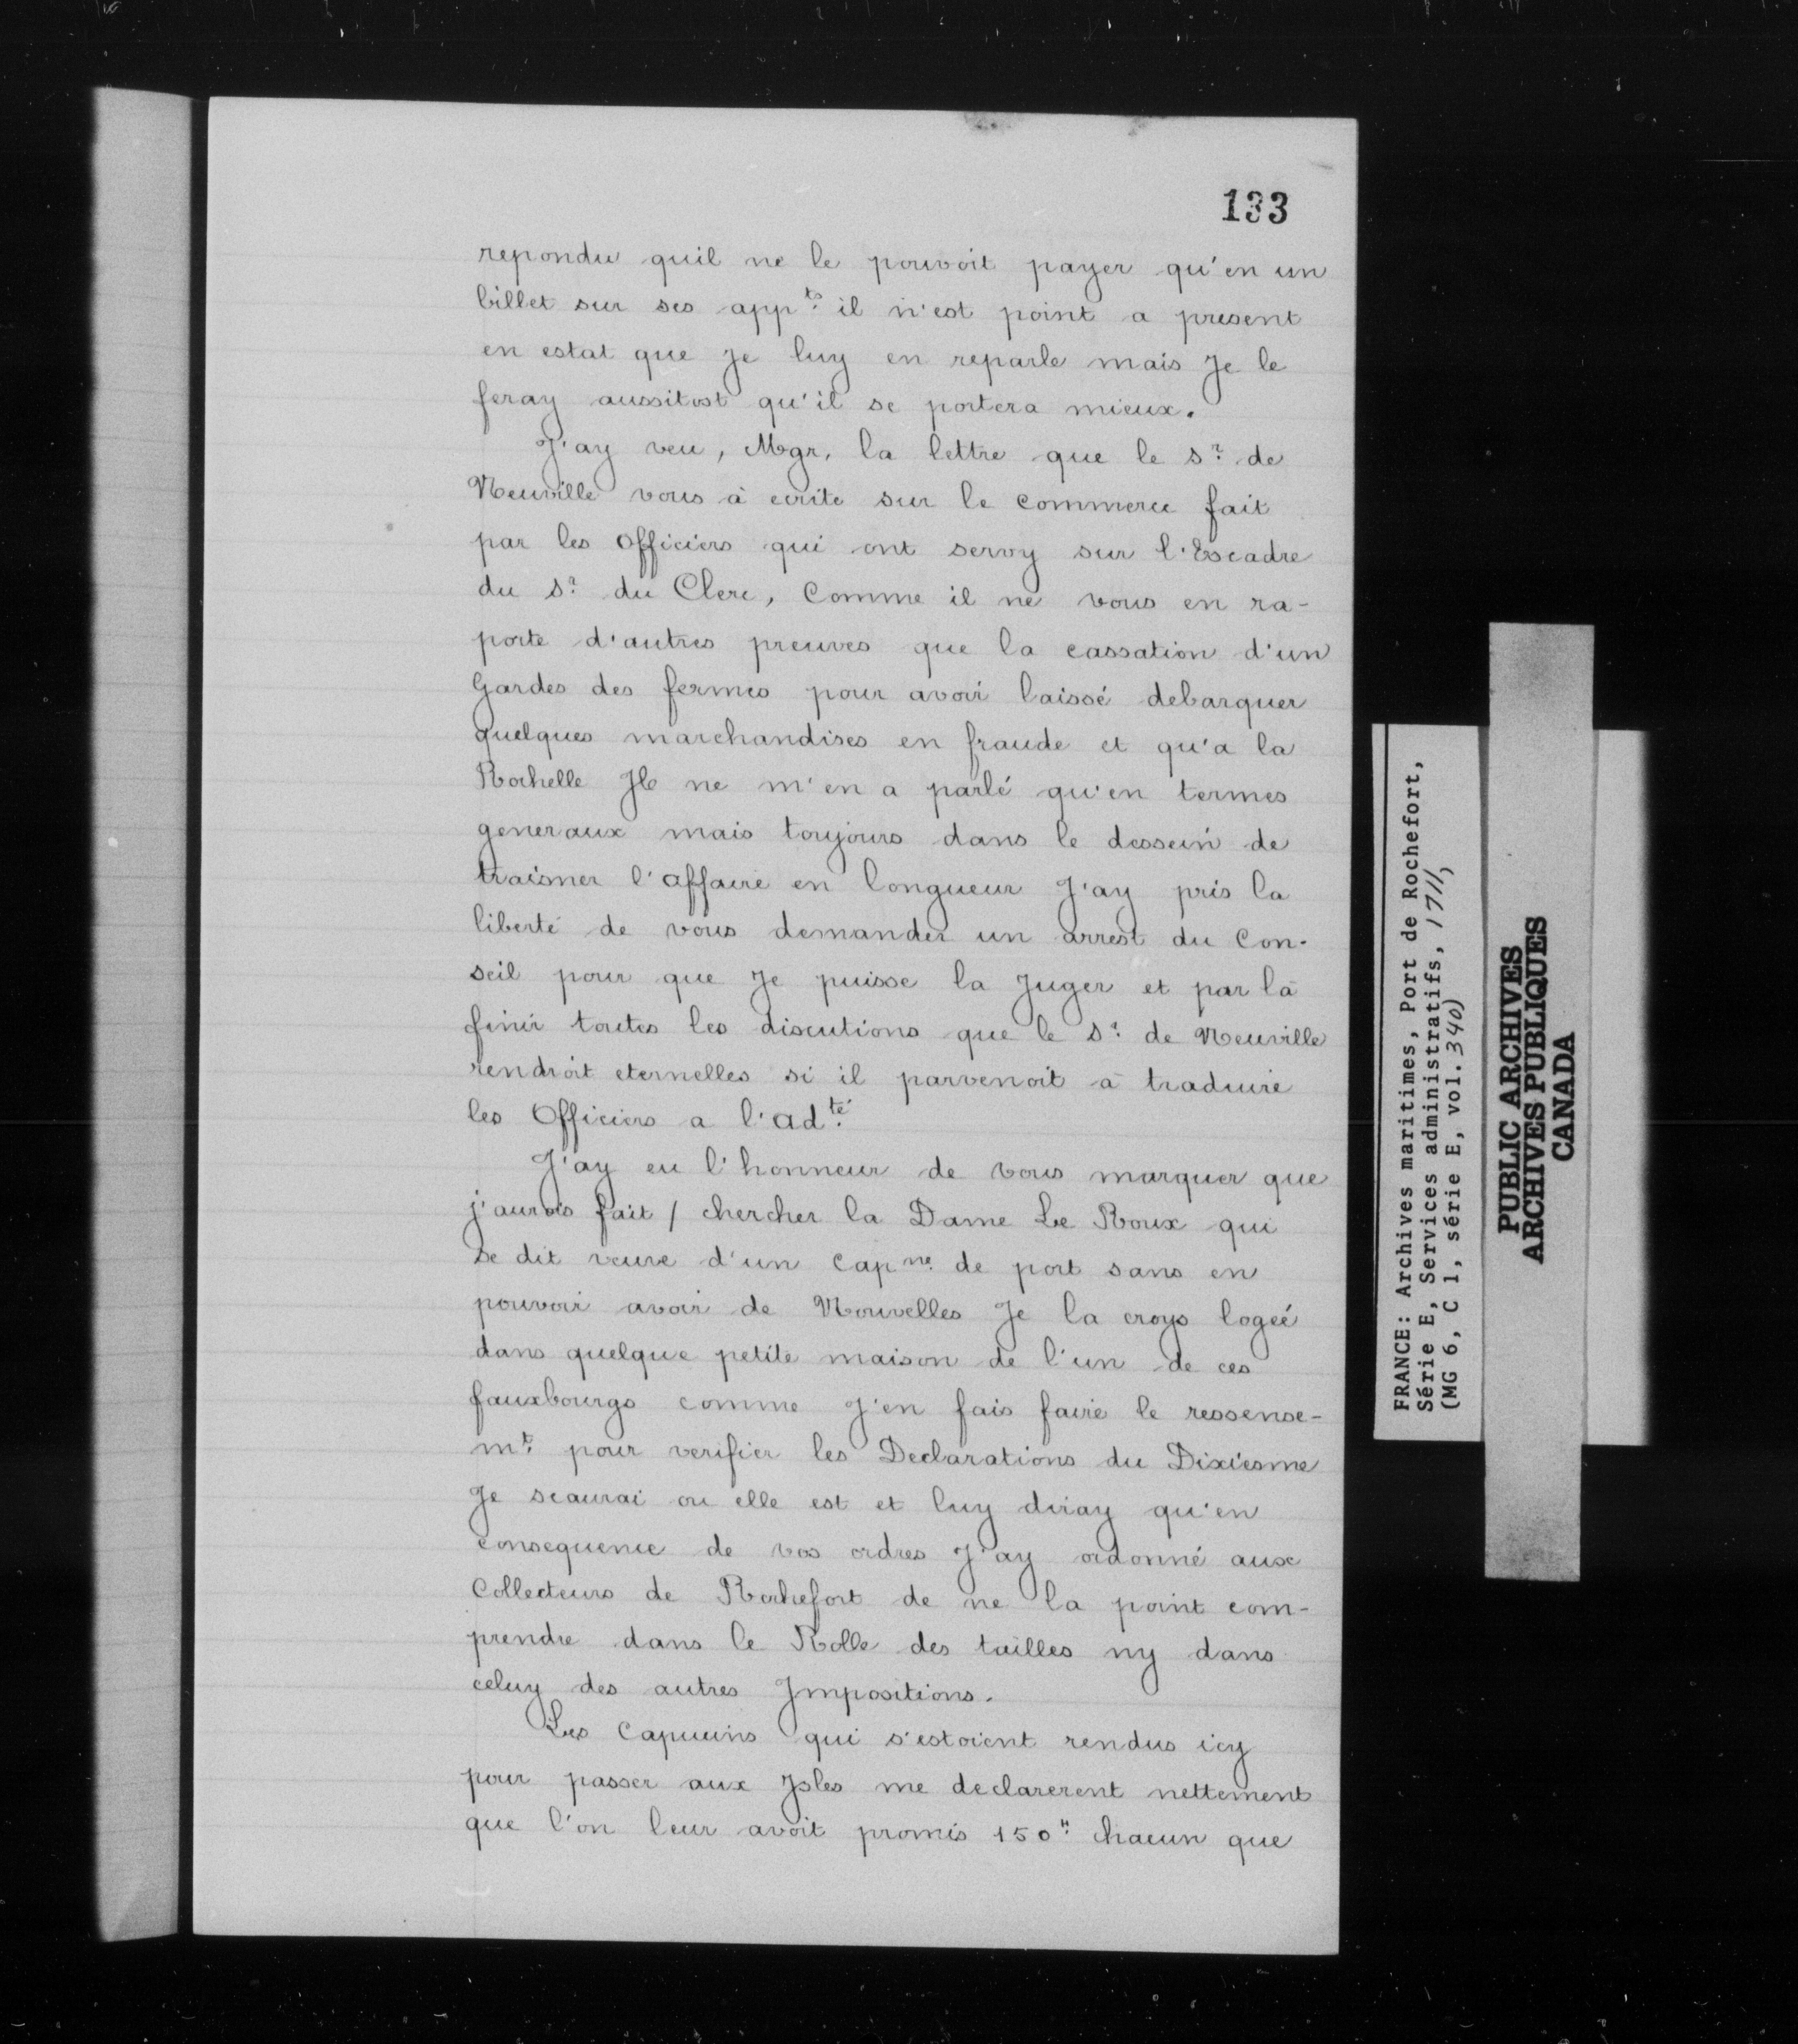 133
repondu quil ne le pouvoit payer qu'en un
billet sur ses app.ts il n'est point a present
en estat que Je luy en reparle mais Je le
feray aussitost qu'il se portera mieux.
J'ay veu, Mgr, la lettre que le Sr. de
Neuville vous à ecrite sur le commerce fait
par les Officiers qui ont servy sur l'Escadre
du Sr. du Clerc, Comme il ne vous en ra-
porte d'autres preuves que la cassation d'un
Gardes des fermes pour avoir laissé debarquer
quelques marchandises en fraude et qu'a la
Rochelle Il ne m'en a parlé qu'en termes
generaux mais toujours dans le dessein de
traisner l'affaire en longueur J'ay pris la
liberté de vous demander un arrest du Con-
seil pour que Je puisse la Juger et par là
finir toutes les discutions que le Sr. de Neuville
rendroit eternelles si il parvenoit à traduire
les Officiers a l'ad.té
J'ay eu l'honneur de vous marquer que
j'aurois fait / chercher la Dame Le Roux qui
se dit veuve d'un Cap.ne de port sans en
pouvoir avoir de Nouvelles Je la croys logeé
dans quelque petite maison de l'un de ces
fauxbourgs comme J'en fais faire le ressense-
m.t pour verifier les Declarations du Dixiesme
Je scaurai ou elle est et luy diray qu'en
consequence de vos ordres J'ay ordonné aux
Collecteurs de Rochefort de ne la point com-
prendre dans le Rolle des tailles ny dans
celuy des autres Impositions.
Les Capucins qui s'estoient rendus icy
pour passer aux Isles me declarerent nettement
que l'on leur avoit promis 150# chacun que
FRANCE: Archives maritimes, Port de Rochefort,
Série E, Services administratifs, 1711,
(MG 6, C 1, série E, vol. 340)
PUBLIC ARCHIVES
ARCHIVES PUBLIQUES
CANADA